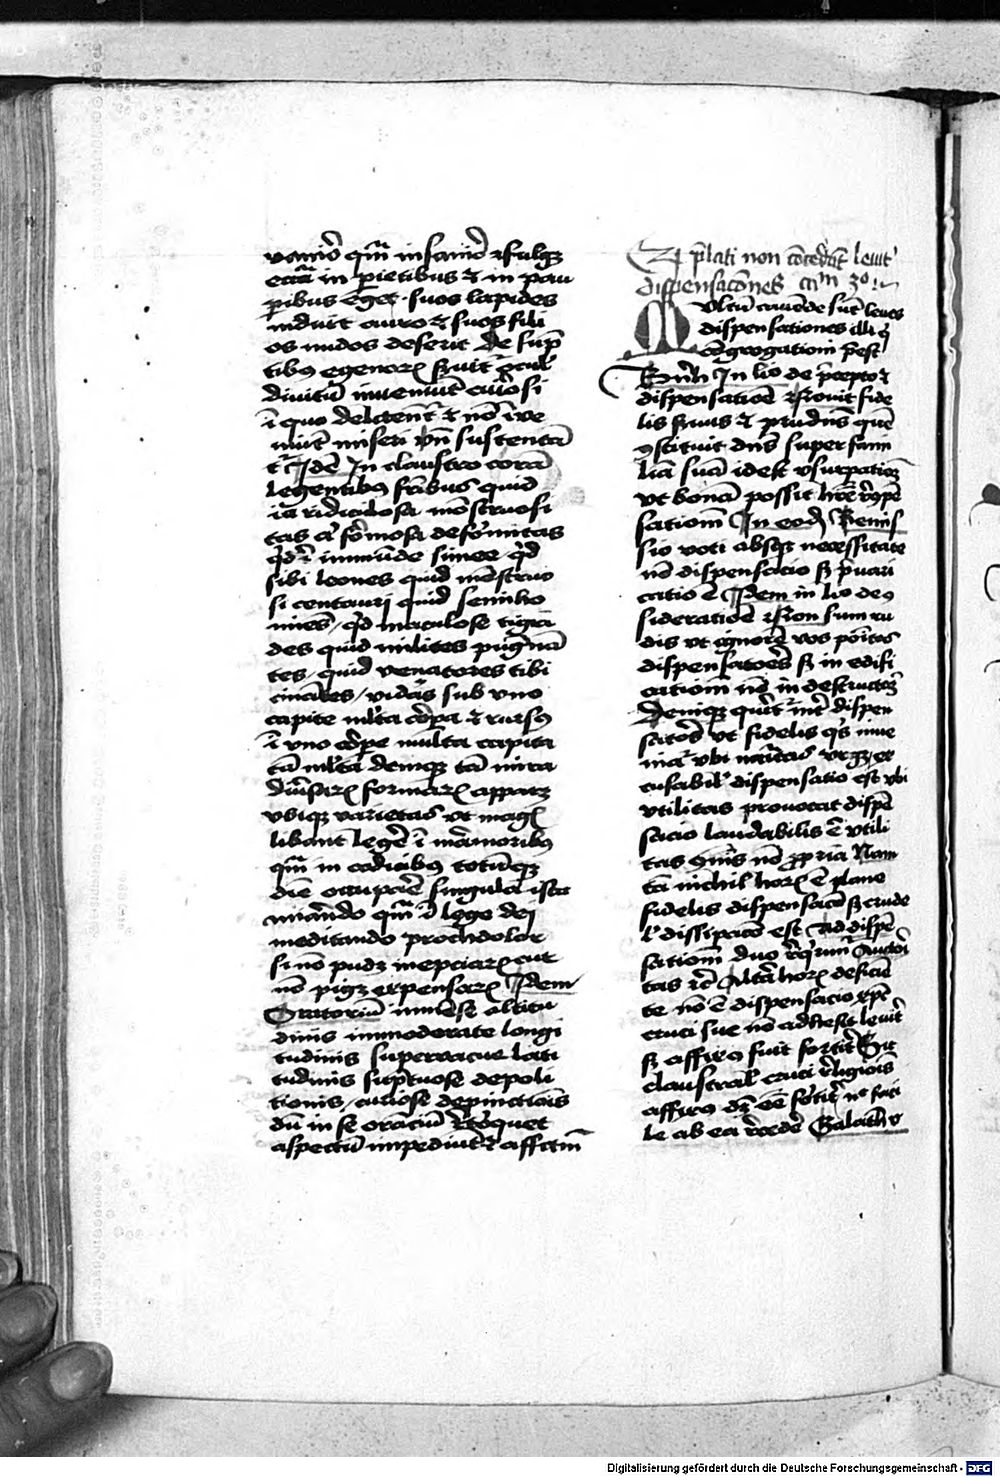 vanior quam insanior Fulget
ecclesia in parietibus et in pau
peribus eget suos lapides
induit auro et suos fili
os nudos deserit De sump
tibus egenorum
diuitum inueniunt curiosi
in quo delectentur et non inue
niunt miseri vnde sustenten
tur Idem In claustro coram
legentibus fratribus quid
ridiculosa monstruosi
tas formosa deformitas
quid immunde simee quid
sibi leones quid monstruo
si centauri quid semiho
mines quid maculose tigri
des quid milites pugnan
tes quid venatores tibi
cinantes videas sub vno
capite multa corpora et rursus
in vno corpore multa capita
tam multa denique tam mira
diuersarum formarum apparet
vbique varietas vt magis
libeant legere in marmoribus
quam in codicibus totumque
diem occupare singula ista
mirando quam in lege dei
meditando prochdolor
si non pudet ineptiarum cur
non piget expensarum Idem
Oratorium immense altitu
dinis immoderate longi
tudinis superuacue lati
tudinis sumptuose depoli
tionis curiose depictionis
dum in se orantium retorquet
aspectum impediunt et affectum
prelati non concedant leuiter
dispensationes 30
Multum cauende sunt leues
dispensationes
congregationi preest
Bernh In libro de precepto et
dispensatione fide
lis seruus et prudens quem
constituit dominus super fami
liam suam idest vsurpationem
vt bonam possit habere recompen
sationem In eodem Remis
sio voti absque necessitate
non dispensacio sed preuari
catio est Idem in libro de con
sideratione Non sum ru
dis vt ignorem vos positos
dispensatores sed in edifi
cationem non in destructionem
Denique queritur inter dispen
satores vt fidelis quis inue
niatur vbi necessitas vrget ex
cusabilis dispensatio est vbi
vtilitas prouocat dispen
sacio laudabilis est vtili
tas communis non propria Nam
cum nichil horum est plane
fidelis dispensacio sed crude
lis dissipacio est Ad dispen
sationem duo requiruntur Auctori
tas etc Altero horum deficien
te non est dispensacio
cruci sue non adhesit leuiter
sed affixus fuit fortiter Sic
claustralis cruci religionis
affixus debet esse fortiter ne faci
le ab ea recedere Galath v
Digitalisierung gefördert durch die Deutsche Forschungsgemeinschaft - DFG